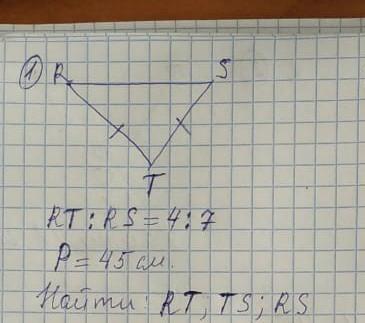 1 R S
T
RT : RS = 4 : 7
P = 45 см.
Найти: RT, TS; RS